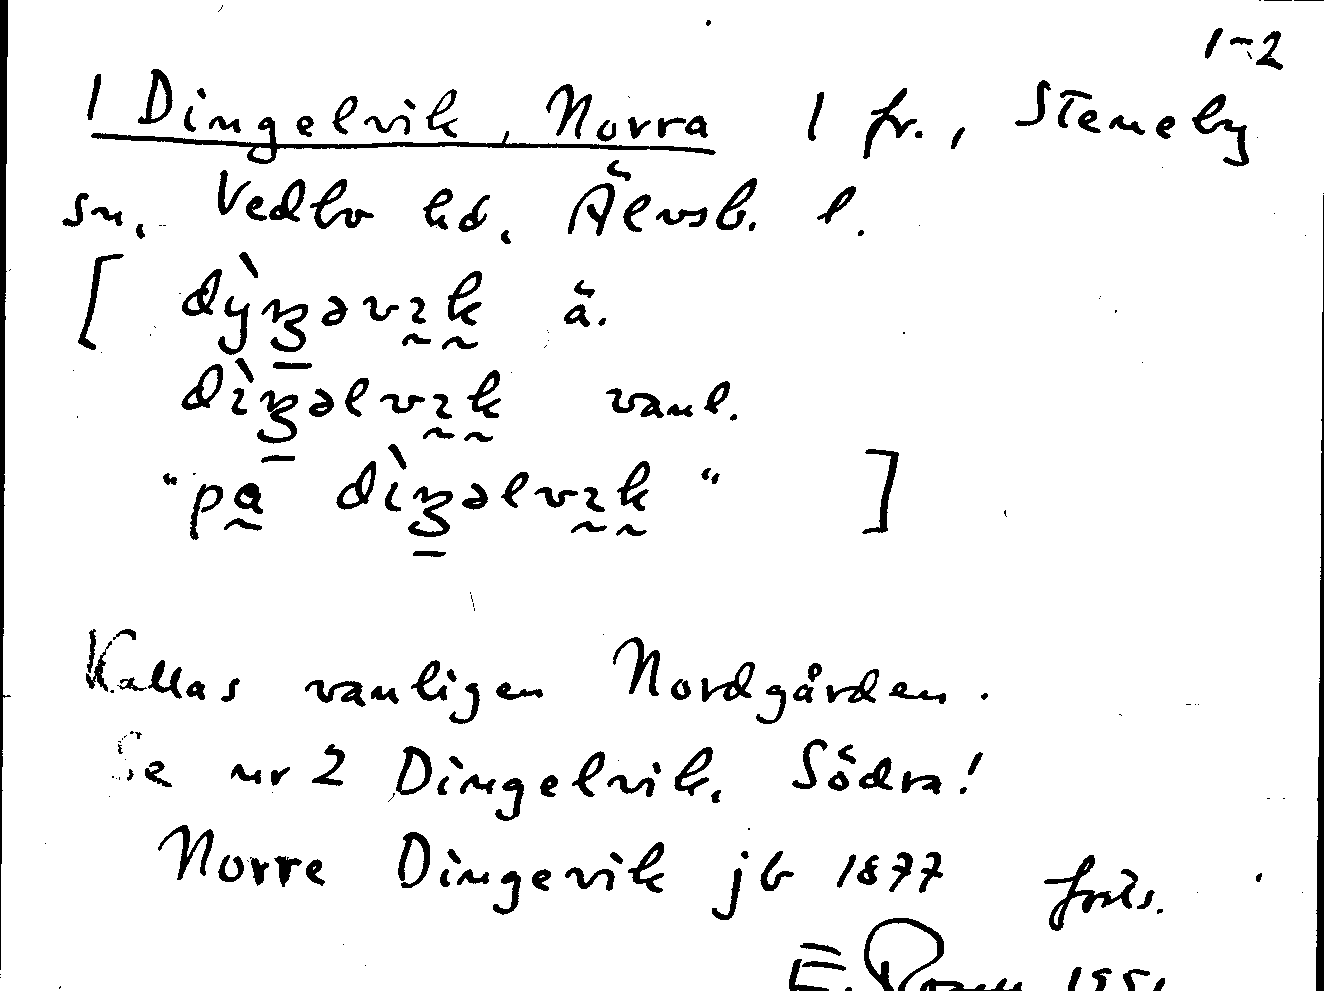 1-2
1 Dingelvik, Norra 1 fr., Steneby
sn. Vedbo hd. Älvsb. l.
[ dỳŋəvɪk ä.
dìŋəlvɪk vanl.
"pa dìŋəlvɪk" ]
Kallas vanligen Nordgården.
Se nr 2 Dingelvik, Södra!
Norre Dingevik jb 1877 forts.
E.